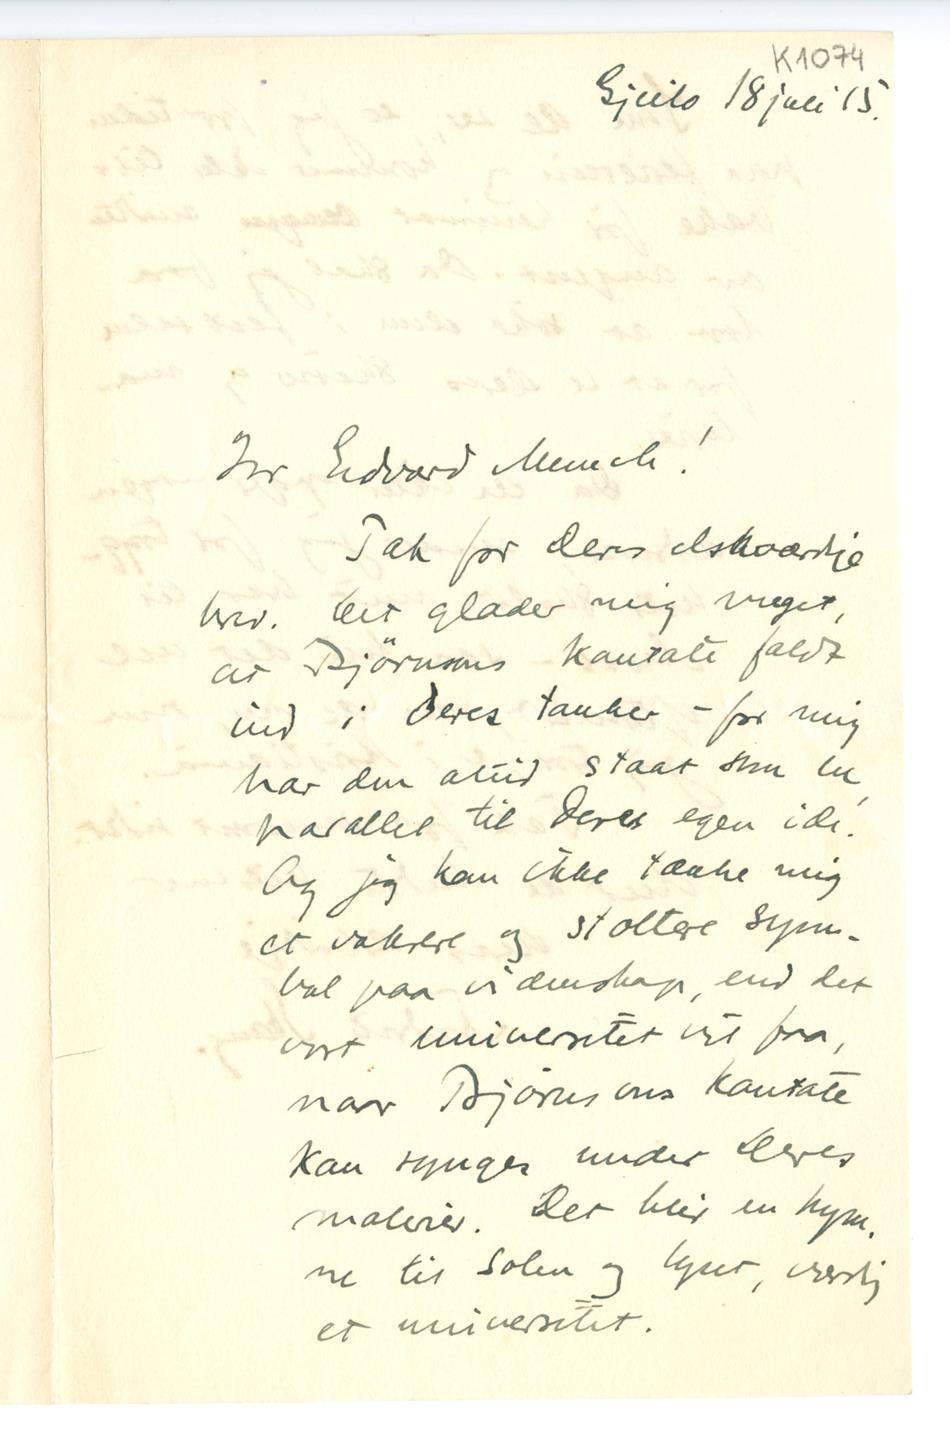 K1074
Gjeilo 18 juli 15.
Hr Edvard Munch!
Tak for Deres elskværdige
brev. Det glæder mig meget,
at Björnsons kantate faldt
ind i Deres tanker – for mig
har den altid staat som en
parallel til Deres egen idé!
Og jeg kan ikke tænke mig
et vakrere og stoltere sym-
bol paa videnskap, end det
vort universitet vil faa,
naar Bjørnsons kantate
kan synges under Deres
malerier. Det blir en hym-
ne til Solen og lyset, værdig
et universitet.